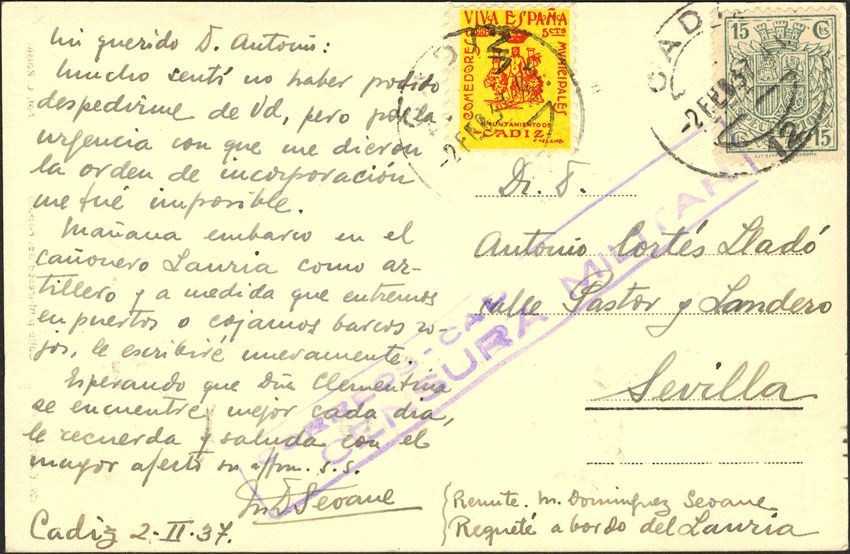 Mi querido D. Antonio:
Mucho sentí no haber podido
despedirme de Vd, pero por la
urgencia con que me dieron
la orden de incorporación
me fué imposible.
Mañana embarco en el
cañonero Lauria como ar-
tillero y a medida que entremos
en puertos o cojamos barcos ro-
jos, le escribiré nuevamente.
Esperando que Dña Clementina
se encuentre mejor cada día,
le recuerda y saluda con el
mayor afecto su affmo. s.s.
M D Seoane
Cadiz 2-II-37.
VIVA ESPAÑA
5 CTS
COMEDORES
MUNICIPALES
AYUNTAMIENTO DE
CADIZ
CADIZ
-2 FEB 37
15 Cts
15
CADIZ
-2 FEB 37
12
CENSURA MILITAR
Sr. D.
Antonio Cortés Lladó
calle Pastor y Landero
Sevilla
Remite. M. Dominguez Seoane
Requeté a bordo del Lauria